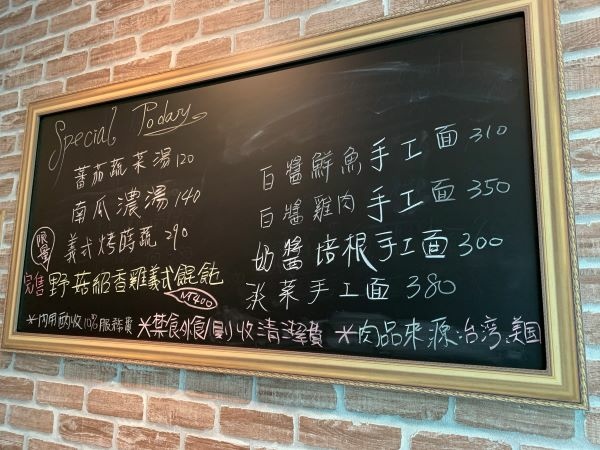 Special Today
蕃茄蔬菜湯120
南瓜濃湯140
限量 義式烤蒔蔬290
完售 野菇奶香雞義式餛飩
NT400
白醬鮮魚手工面310
白醬雞肉手工面350
奶醬培根手工面300
淡菜手工面380
*內用酌收10%服務費 *禁食外食 *肉品來源台湾、美国